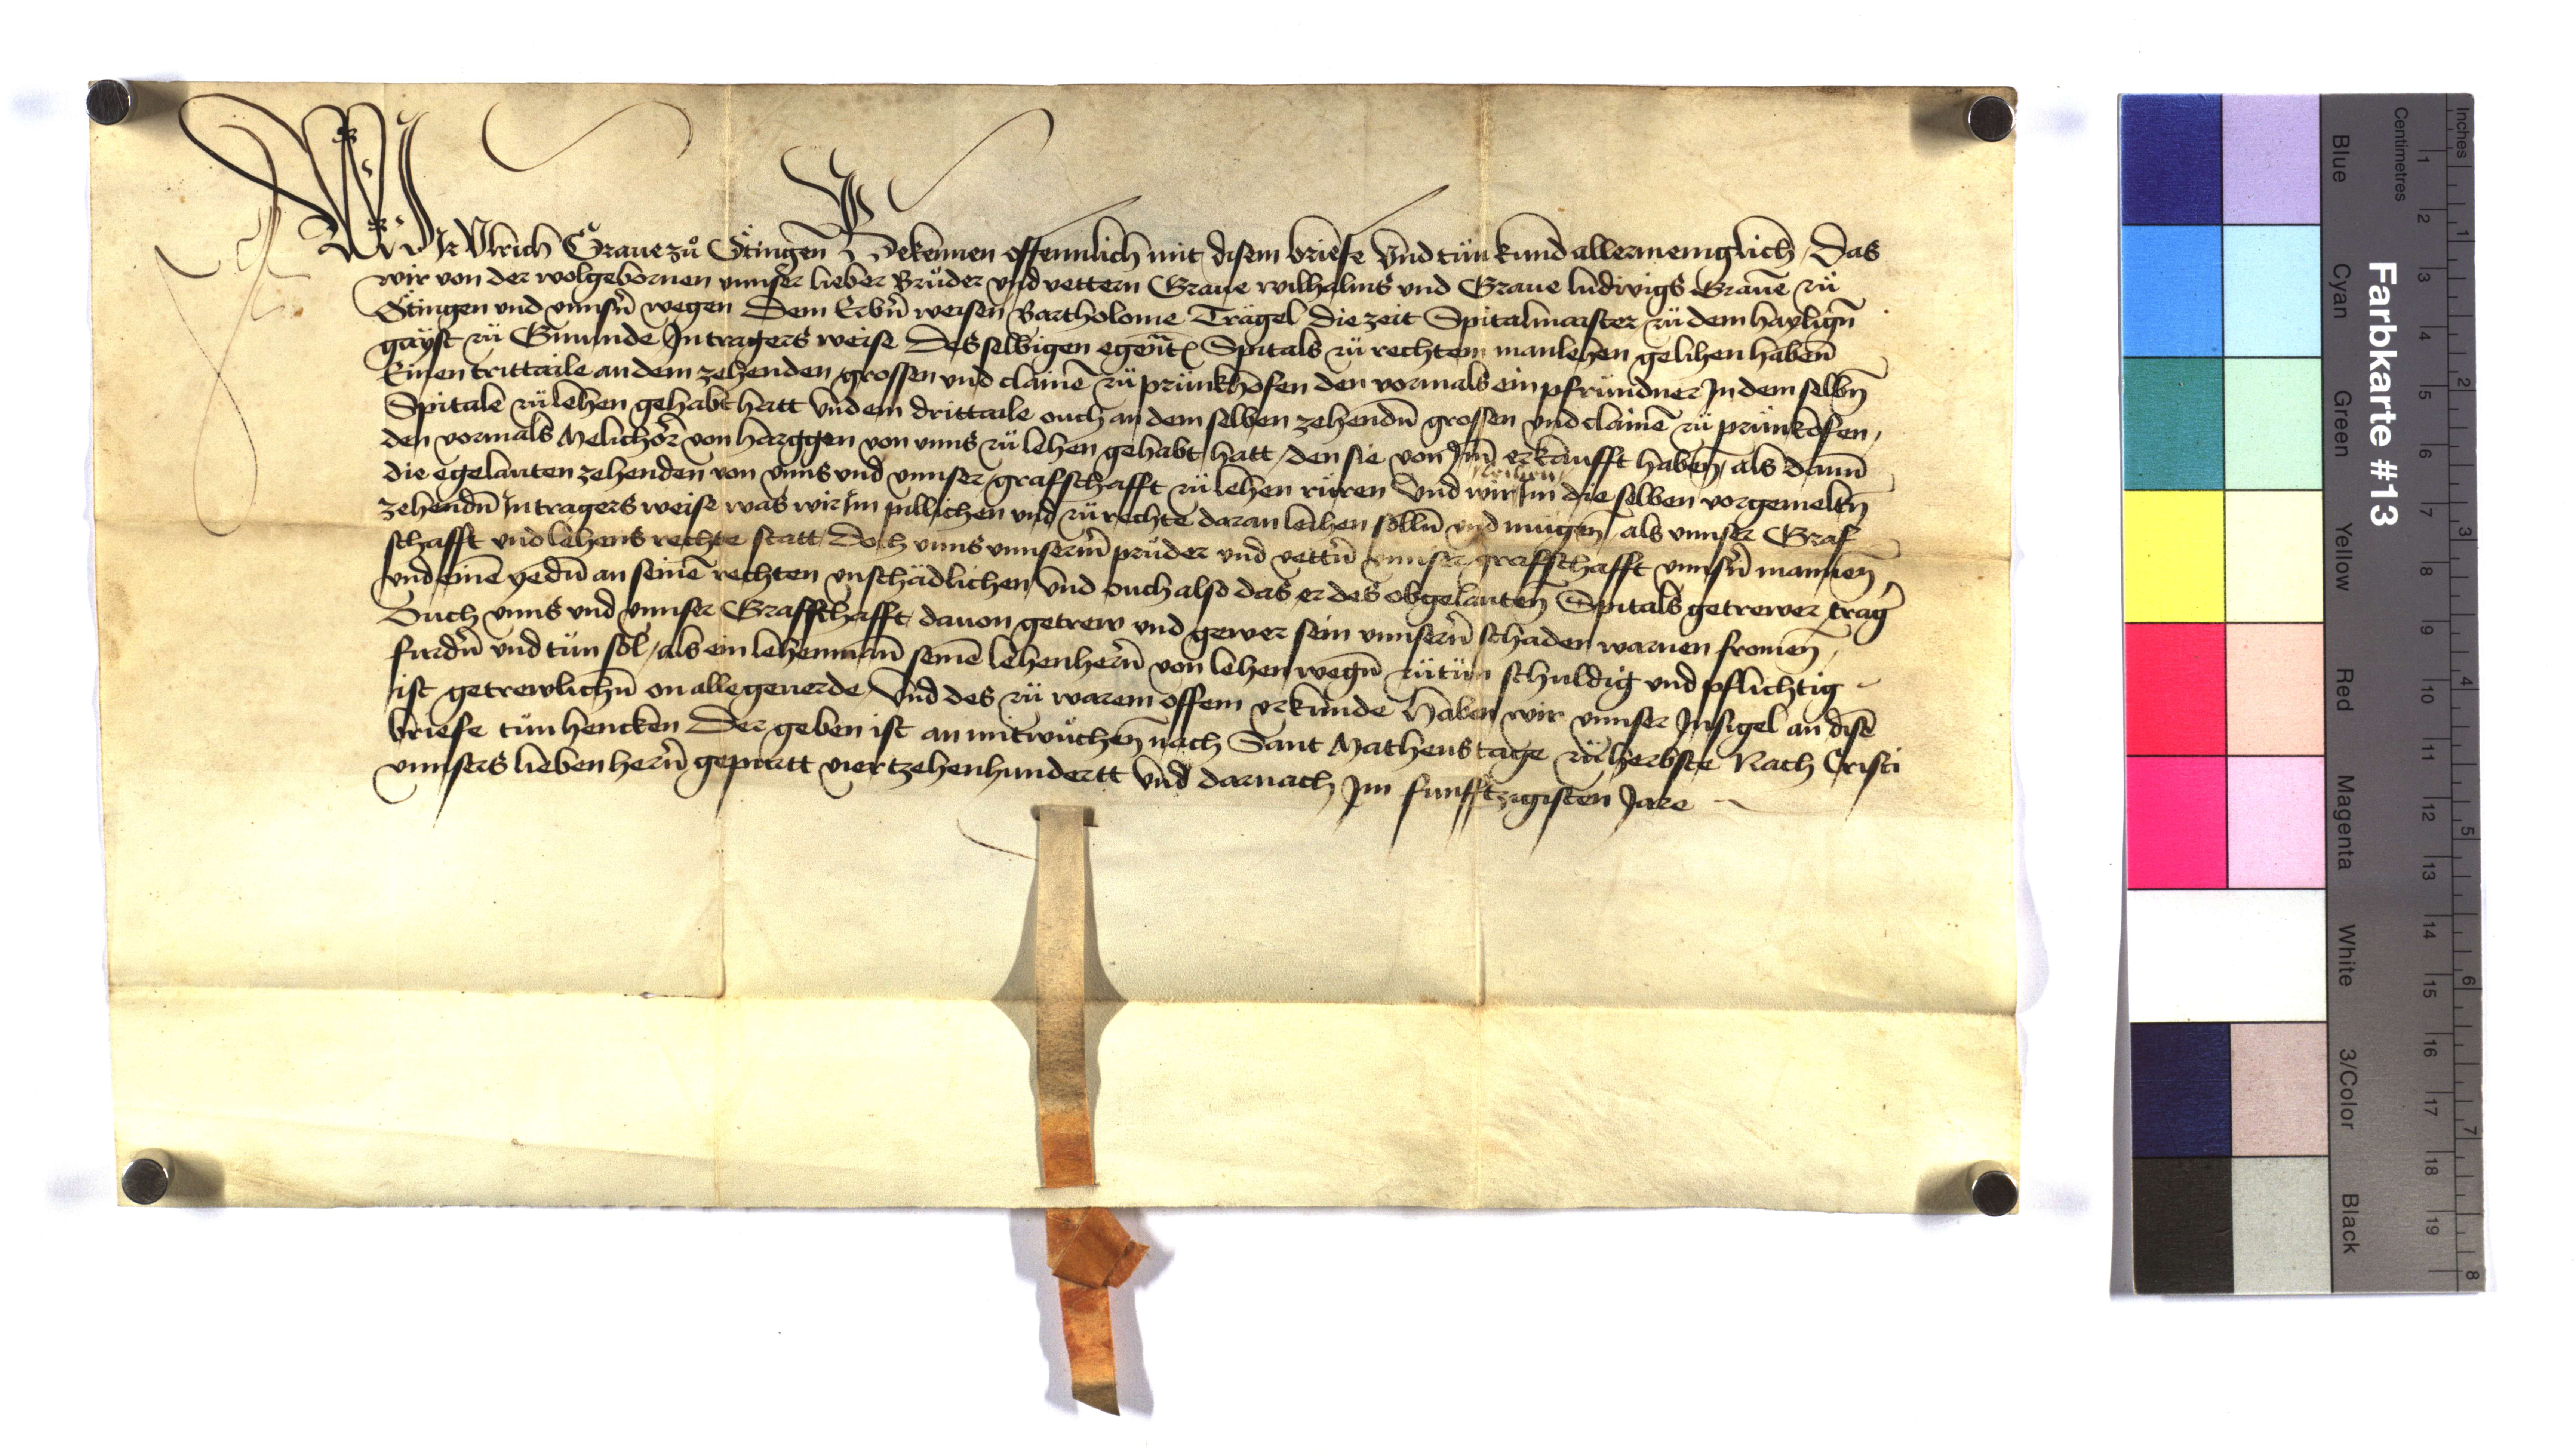 Wir Vlrich Graue zů Ötingen Bekennen offennlich mit disem briefe Vnd tün kund allermeniglich, Das
wir von der wolgebornen vnnser lieber Brüder vnd vettern Graue wilhalms vnd Graue ludwigs Grauen zü
Ötingen vnd vnnsern̄ wegen Dem Erbn̄ weisen Bartholome Trägel die zeit Spitalmaister zü dem haylign̄
gäyst zü Gmunde In tragers weise Desselbigen egen̄t Spitals zü rechtem manlehen gelihen haben̄
Einen trittaile an dem zehenden grossen vnd clainē zü prünkhofen den vormals ein pfründner In dem selbn̄
Spitale zü lehen gehabt hatt Vnd ein drittaile ouch an dem selben zehendn̄ grossen vnd clainē zü prünkofen,
den vormals Melichör von harggen von vnns zü lehen gehabt hatt, den sie von Im̄ erkaufft haben̄, als dann̄
die egelauten zehenden von vnns vnd vnnser grafschafft zü lehen rüren Vnd wir leihen Im die selben vorgemeltn̄
zehendn̄ In tragers weise was wir Im pillichen vnd zü rechte daran leihen solln̄ vnd mügen̄, als vnnser Graf
schafft vnd lehens rechte statt, Doch vnns vnnserm̄ prüder vnd vettn̄ vnnser grafschafft vnnsn̄ mannen̄
vnd einē yedn̄ an seinē rechten vnschädlichen, Vnd ouch also das er des obgelauten̄ Spitals getrewer trag̕
Ouch vnns vnd vnnser Graffschafft, dauon getrew vnd gewer sein vnnsern̄ schaden warnen fromen̄,
furdn̄ vnd tün sol, als ein lehenman̄ seinē lehenhern̄ von lehen wegn̄ zütün schuldig vnd pflichtig
ist getrewlichn̄ on alle geuerde Vnd des zü warem offem vrkunde Haben wir vnnser Insigel an disē
briefe tün hencken Der geben ist an mitwůchen̄ nach Sant Matheus tage zü herbste Nach Cristi
vnnsers lieben hern̄ gepurtt viertzehenhundertt Vnd darnach Im funfftzigisten Jare
Farbkarte #13
Blue Cyan Green Yellow Red Magenta White 3/Color Black
Centimetres 1 2 3 4 5 6 7 8 9 10 11 12 13 14 15 16 17 18 19
Inches 1 2 3 4 5 6 7 8